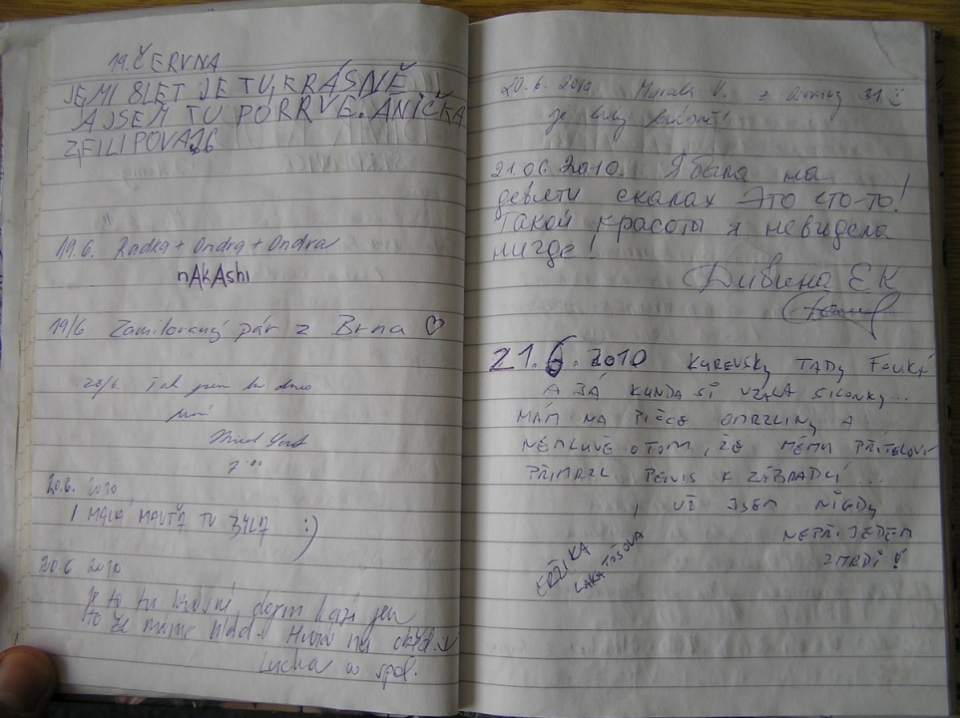 19. ČERVNA
JE MI 8LET JE TU KRÁSNĚ
A JSEM TU PORRVE. ANIČKA
19.6. Radka + Ondra + Ondra
nAkAshi
19/6 Zamilovaný pár z Brna ♡
20/6. Tak jsem to dnes
7:00
20.6. 2010
I MALÁ TU BYLA :)
20.6 2010
Je to tu krásné, dojem kazí jen
to že máme hlad. Hurá na oběd.
Lucka a spol.
20.6. 2010 V. z 31 č
je tady
21.06.2010. Я была на
девяти скалах Это сто-то!
Такой красоты я невидела
нигде!
Дивина ЕК
21.6.2010 KUREVSKY TADY FOUKÁ
A JÁ KUNDA SI VZALA SILONKY..
MÁM NA PIČCE OMRZLINY A
NEMLUVĚ OTOM, ŽE MÉMU PŘÍTELOVI
PŘIMRZL PENIS K ZÁBRADLÍ...
UŽ SEM NIGDY
NEPŘIJEDEM
ZMRDI!
ERŽIKA
LAKATOŠOVA